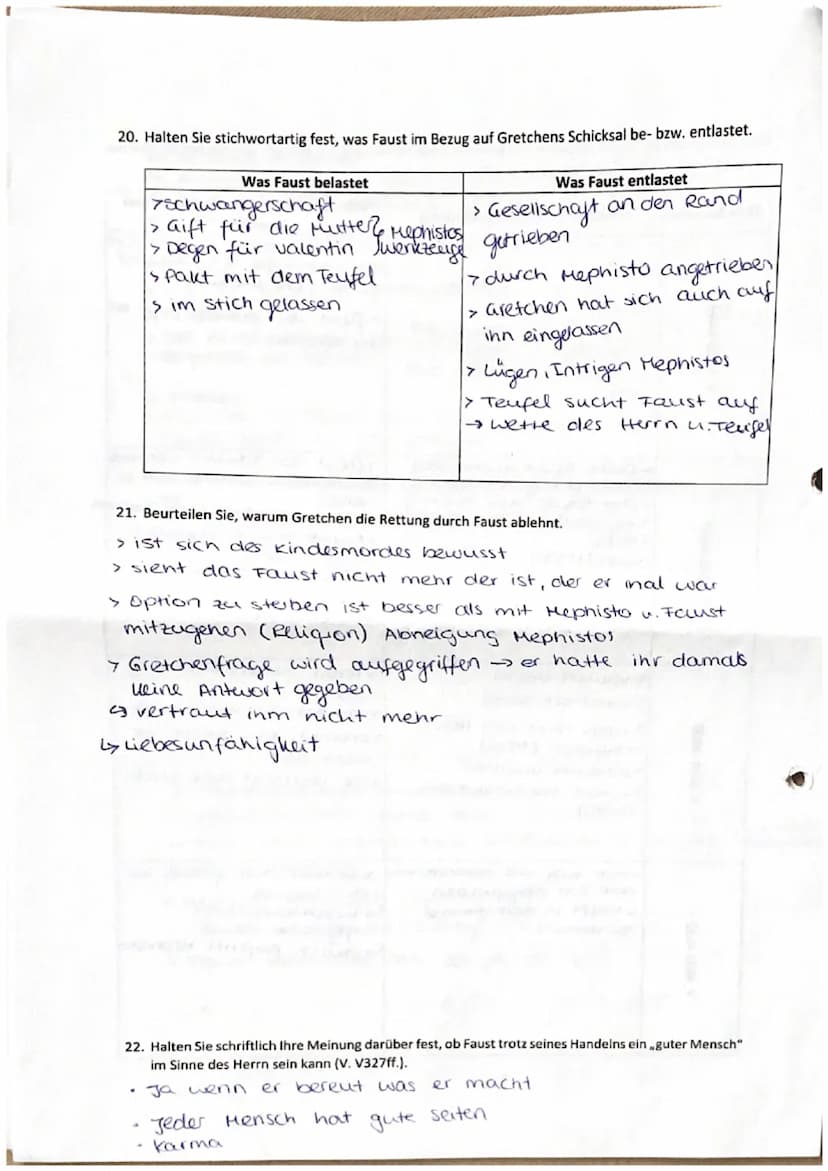 20. Halten Sie stichwortartig fest, was Faust im Bezug auf Gretchens Schicksal be- bzw. entlastet.
Was Faust belastet
> Schwangerschaft
> Gift für die Mutter } Mephistos
> Degen für Valentin } Werkzeuge
> Pakt mit dem Teufel
> im Stich gelassen
Was Faust entlastet
> Gesellschaft an den Rand
getrieben
> durch Mephisto angetrieben
> Gretchen hat sich auch auf
ihn eingelassen
> Lügen, Intrigen Mephistos
> Teufel sucht Faust auf
→ Wette des Herrn u. Teufel
21. Beurteilen Sie, warum Gretchen die Rettung durch Faust ablehnt.
> ist sich des Kindesmordes bewusst
> sieht das Faust nicht mehr der ist, der er mal war
> Option zu sterben ist besser als mit Mephisto u. Faust
mitzugehen (Religion) Abneigung Mephistos
> Gretchenfrage wird aufgegriffen → er hatte ihr damals
keine Antwort gegeben
↳ vertraut ihm nicht mehr
↳ Liebesunfähigkeit
22. Halten Sie schriftlich Ihre Meinung darüber fest, ob Faust trotz seines Handelns ein „guter Mensch"
im Sinne des Herrn sein kann (V. V327ff.).
• Ja wenn er bereut was er macht
• Jeder Mensch hat gute Seiten
• Karma